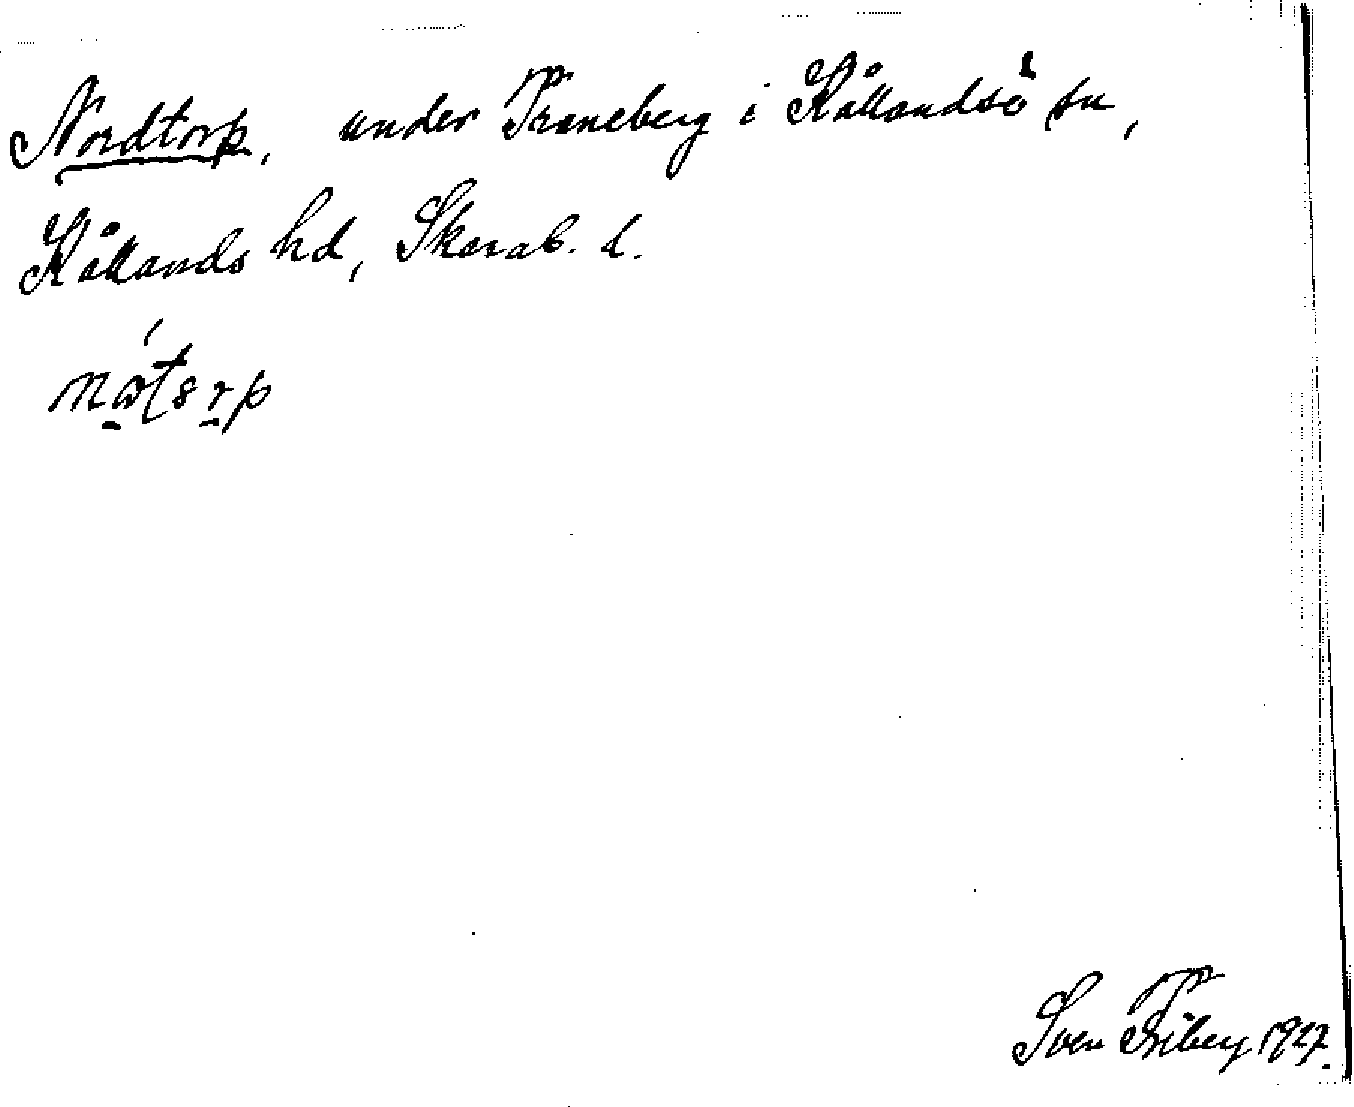 Nordtorp, under Traneberg i Kållandsö sn,
Kållands hd, Skarab. l.
Sven Friberg 1927.